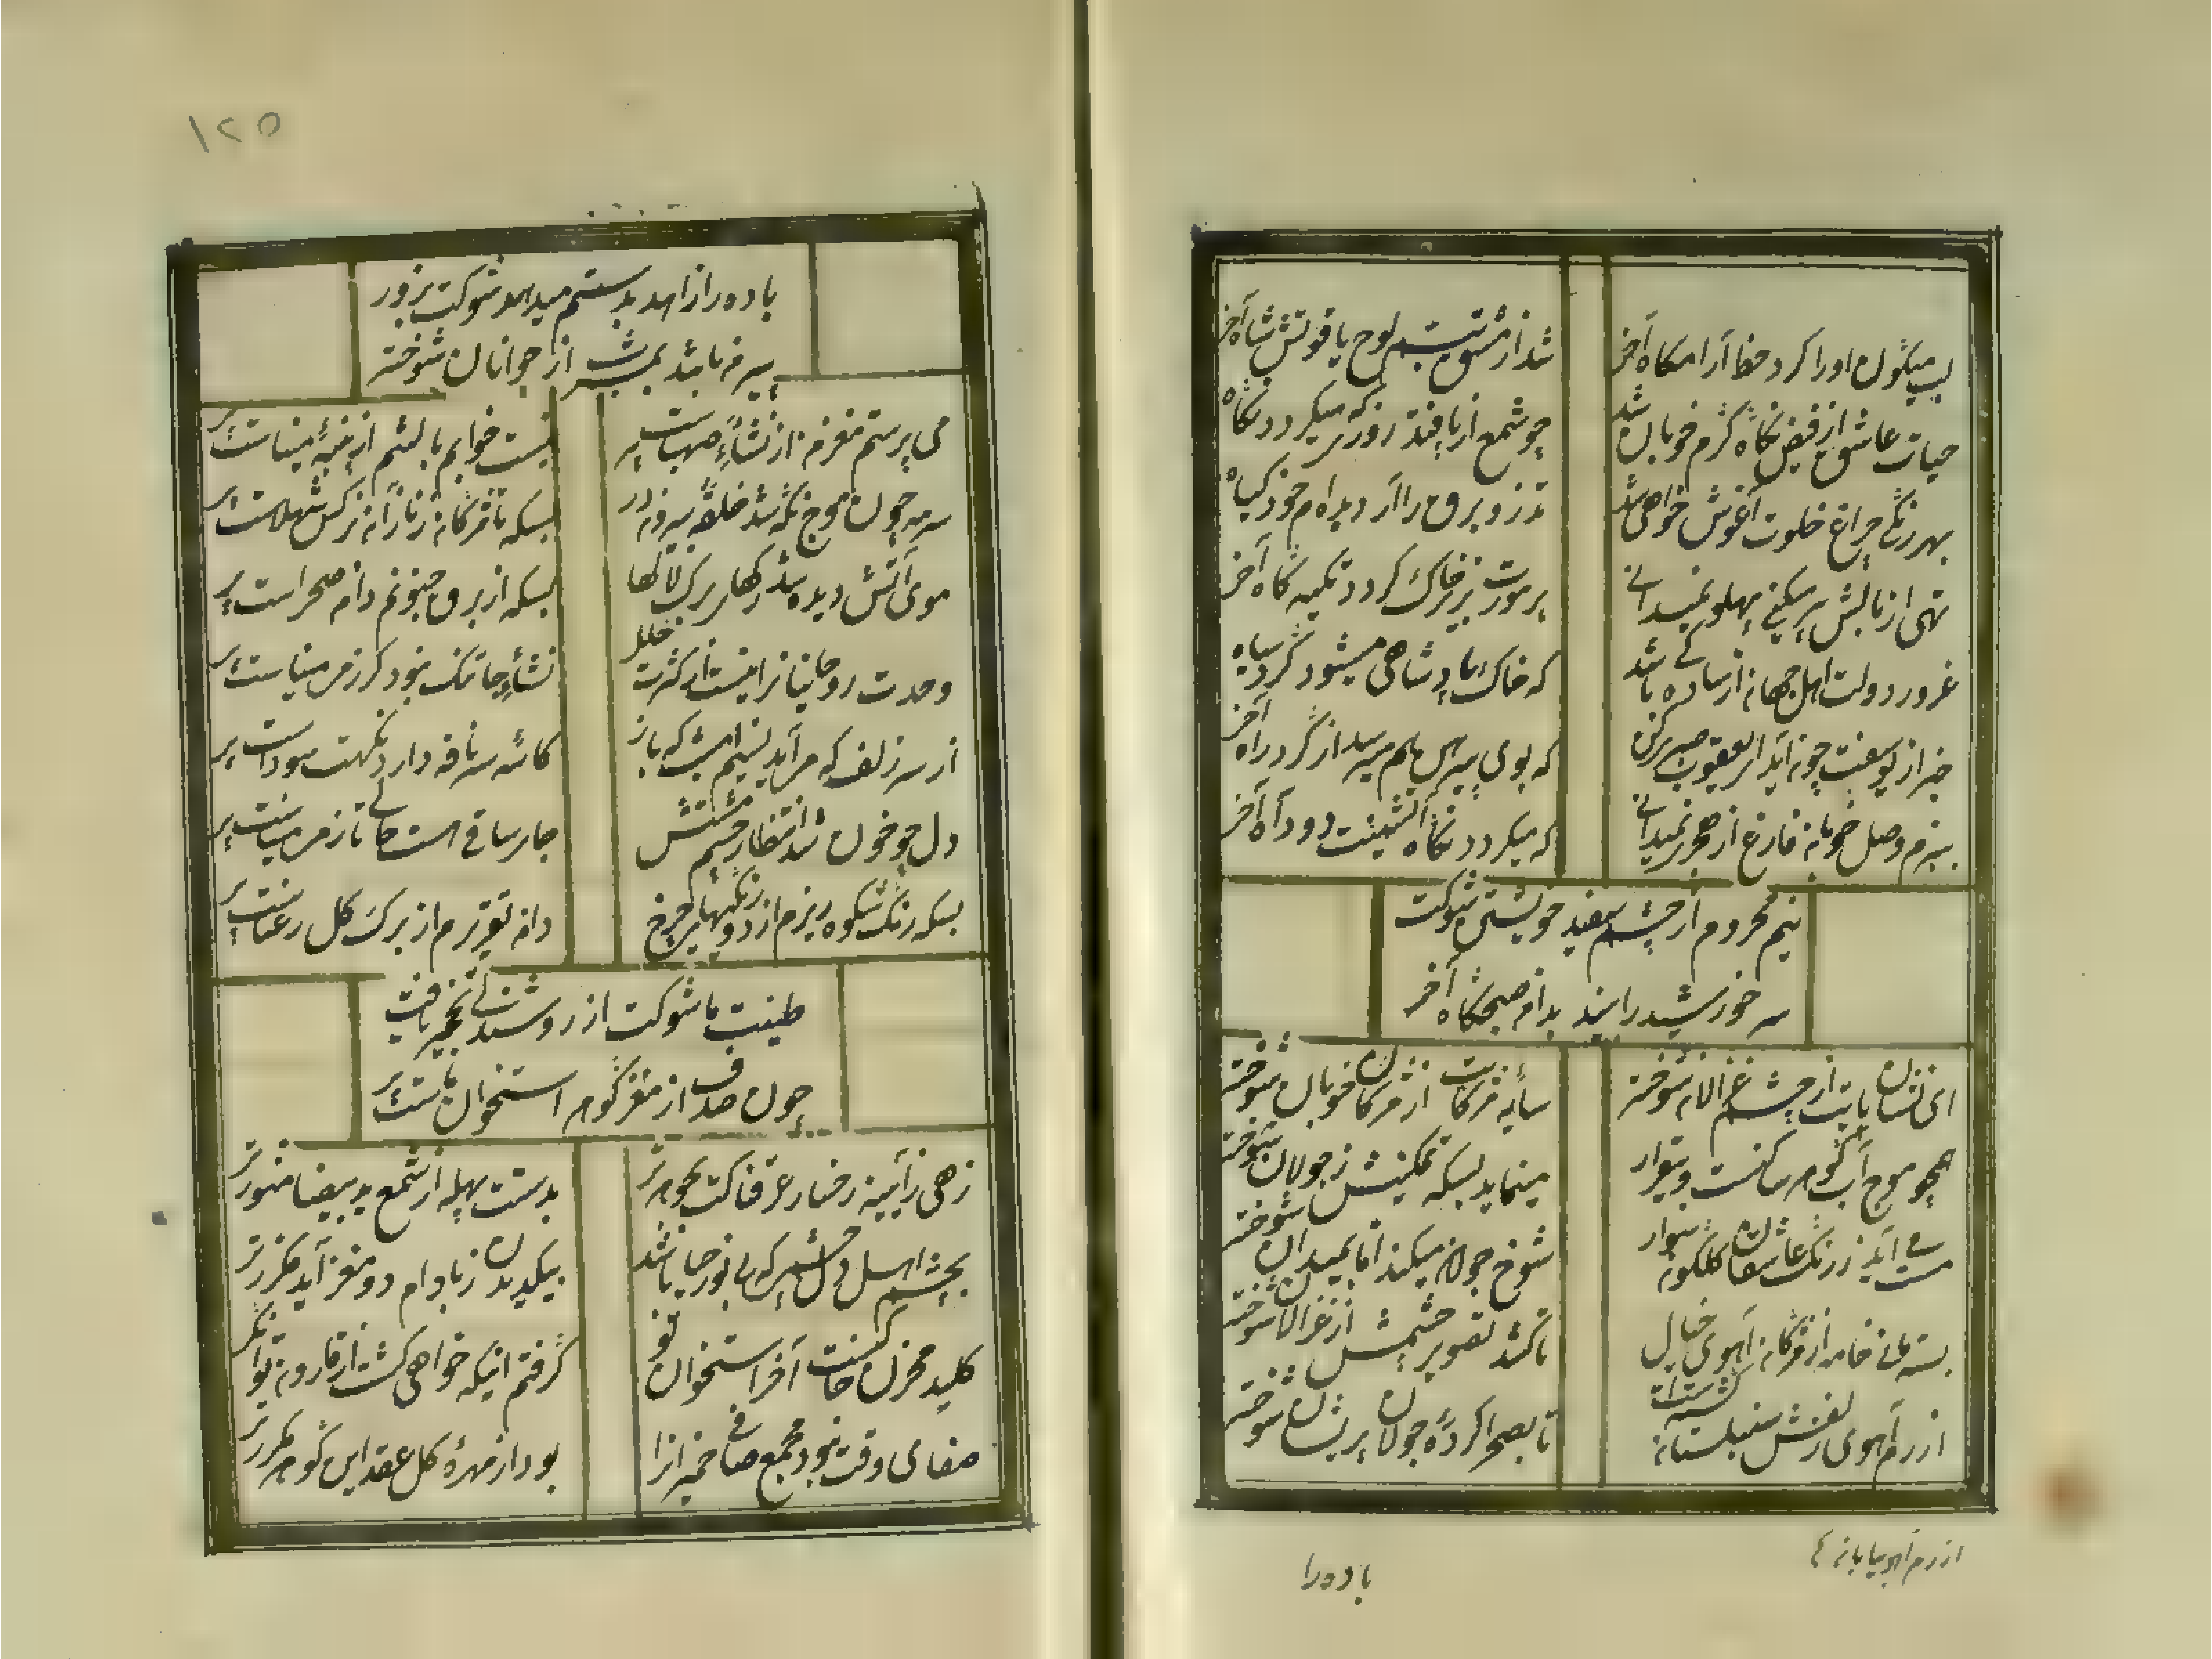 لب میکون او را کرد خط آرامکاه آخر
شد از مشق تبسم لوح یاقوتش سیاه آخر
حیات عاشق از فیض نگاه گرم خوبان شد
چو شمع از پا فتد روزی که میگردد نگاه
بهر رنگی چراغ خلوت آغوش خواهی شد
تهی از بالش پر میکنی پهلو نمیدانی
پر مورت بزیر خاک گردد تکیه گاه آخر
غرور دولت اهل جهان از سادگی باشد
که خاک پادشاهی میشود گرد سپاه
خبر از یوسفت چون آید ای یعقوب صبری کن
که بوی پیرهن هم میرسد از گرد راه آخر
ببزم وصل خوبان فارغ از هجری نمیدانی
که میگردد نگاه آتشینت دود آه آخر
نیم محروم از چشم سفید خویشتن شوکت
سر خورشید را بیند بدام صبحگاه آخر
ای نشان پایت از چشم غزالان شوختر
سایه مژگانت از مژگان خوبان شوختر
همچو موج آب گوهر ساکنست و بیقرار
مینماید بسکه تمکینش ز جولان شوختر
مست می آید ز رنگ عاشقان گلگون سوار
شوخ جولان میکند اما بمیدان شوختر
بسته ام خامه از مژگان آهوی خیال
تا کشد تصویر چشمش از غزالان شوختر
از رم آهوی زلفش سنبلستان گشته است
تا بصحرا کرده جولان پریشان شوختر
از رم آهو بیابان
باده را
۱۲۵
باده را زاهد بدستم میدهد شوکت بزور
پیر من باشد بمشرب از جوانان شوختر
می پرستم مغزم از نشأه صهباست پر
نیست خوابم بالشم از پنبه میناست پر
سرمه چون موج نگه شد حلقه بیرون در
بسکه تا مژگان ز ناز آن نرگس شهلاست پر
موی آتش دیده شد رگهای برگ لالها
بسکه از برق جنونم دامن صحراست پر
وحدت روحانیان را نیست از کثرت خلل
نشأه جا تنگ نبود گر ز می میناست پر
از سر زلف که می آید نسیم امشب که باز
کاسه سر نافه وار از نکهت سوداست پر
دل چو خون شد انتظار چشم مستش
جای ساقی هست خالی تا ز می میناست پر
بسکه رنگ شکوه ریزم از دو رنگیهای چرخ
دامن تقریرم از برگ گل رعناست پر
طینت ما شوکت از روشندلی تخمیر یافت
چون صدف از مغز گوهر استخوان ماست پر
زهی ز آیینه رخسار عرقناکت گوهر تر
بدستت پیاله از شمع ید بیضا منور تر
بچشم اهل دل شهری که بی نور حیا باشد
کلید مخزن جانست آخر استخوان تو
گرفتم اینکه خواهی گشت از قارون توانگر
صفای وقت نبود مجمع صافی ضمیران را
بود از مهره گل عقد این گوهر مکدر تر